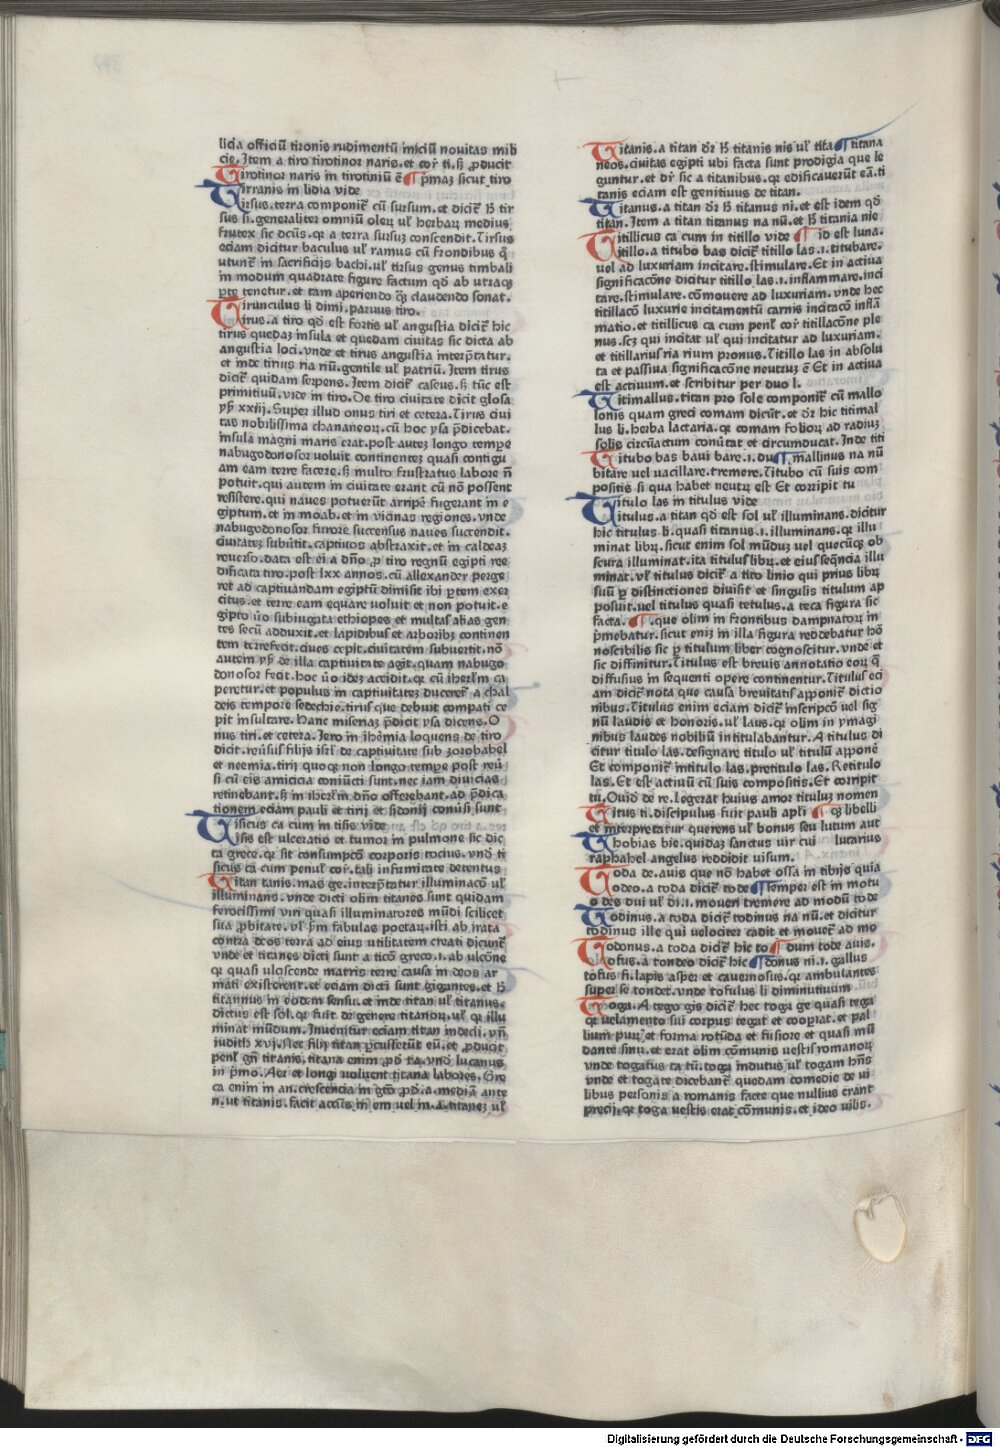 licia officiū tironis rudimentū iniciū nouitas mili
cie. Item a tiro tirotinor naris. et cor̄ ti. ß ꝓducit
Tirotinor naris in tirotiniū ē ¶ p̄maȝ sicut tiro
Tirranis in lidia vide
Tirsus. terra componit᷑ cū sursum. et dicit᷑ ħ tir
sus si. generaliter omniū oleꝝ ul̓ herbaꝝ medius
frutex sic dc̄us. qꝛ a terra sursuȝ conscendit. Tirsus
eciam dicitur baculus ul̓ ramus cū frondibus q̄
utunt᷑ in sacrificijs bachi. ul̓ tirsus genus timbali
in modum quadrate figure factum qd̓ ab utraqꝫ
ꝑte tenetur. et tam aperiendo qꝫ claudendo sonat.
Tirunculus li dimi. paruus tiro.
Tirus. a tiro qd̓ est fortis ul̓ angustia dicit᷑ hic
tirus quedaȝ insula et quedam ciuitas sic dicta ab
angustia loci. vnde et tirus angustia interp̄tatur.
et inde tirius ria riū. gentile ul̓ patriū. Item tirus
dicit᷑ quidam serpens. Item dicit᷑ caseus. ß tūc est
primitiuū. vide in tiro. De tiro ciuitate dicit glosa
yß xxiij. Super illud onus tiri et cetera. Tirus ciui
tas nobilissima chananeoꝝ. cū hoc ysa p̄dicebat.
insula magni maris erat. post auteȝ longo tempe
nabugodonosor uoluit continenteȝ quasi contigu
am eam terre facere. ß multo frustratus labore n̄
potuit. qui autem in ciuitate erant cū nō possent
resistere. qui naues potuerūt arripe fugerant in e
giptum. et in moab. et in vicinas regiones. vnde
nabugodonosor furore succensus naues succendit.
ciuitateȝ subūtit. captiuos abstraxit. et in caldeaȝ
reuerso. data est ei a dño ꝓ tiro regnū egipti ree
dificata tiro. post lxx annos. cū allexander perge
ret ad captiuandam egiptū dimisit ibi ꝑtem exer
citus. et terre eam equare uoluit et non potuit. e
gipto ūo subiugata ethiopes et multas alias gen
tes secū adduxit. et lapidibus et arboribȝ continen
tem terrefecit. ciues cepit. ciuitatem subuertit. nō
autem yß de illa captiuitate agit. quam nabugo
donosor fecit. hoc ūo ideȝ accidit. qꝛ cū iherl̄m ca
peretur. et populus in captiuitateȝ duceret᷑ a chal
deis tempore sedechie. tirus que debuit compati ce
pit insultare. Hanc miseriaȝ p̄dicit ysa dicens. O
nus tiri. et cetera. Jero in ihēmia loquens de tiro
dicit. reūsus filijs isrl̓ de captiuitate sub zorobabel
et neemia. tirij quoqꝫ non longo tempe post reū
si cū eis amicicia coniūcti sunt. nec iam diuicias
retinebant. ß in iherl̄m dño offerebant. ad p̄dica
tionem eciam pauli et tirij et sidonij conūsi sunt
Tisicus ca cum in tisis vide
Tisis est ulceratio et tumor in pulmone sic dic
ta grece. qꝛ sit consumpcō corporis tocius. vnd̓ ti
sicus ca cum penul̓ cor̄. tali infirmitate detentus
Titan tanis. mas ge. interp̄tatur illuminacō ul̓
illuminans. vnde dicti olim titanes sunt quidam
ferocissimi viri quasi illuminatores mūdi scilicet
sua ꝓbitate. ul̓ ẜm fabulas poetaꝝ. isti ab irata
contra deos terra ad eius utilitatem creati dicunt᷑
vnde et titanes dicti sunt a ticō greco. i. ab ulcōne
qꝛ quasi ulciscende matris terre causa in deos ar
mati existerent. et eciam dicti sunt gigantes. et ħ
titannus in eodem sensu. et inde titan ul̓ titanus.
dictus est sol. qꝛ fuit de genere titanoꝝ. ul̓ qꝛ illu
minat mūdum. Inuenitur eciam titan indecli. vn̄
iudith xvj. Nec filij titan ꝑcusserūt eū. et ꝓducit
penl̓ gn̄ titanis. titana enim ꝓd̓ ta. vnd̓ lucanus
in p̄mo. Aer et longi voluent titana labores. Gre
ca enim in an. crescencia in gtō ꝓd̓. a. mediā ante
n. ut titanis. facit accūs in em uel in. a. titaneȝ ul̓
Titanis. a titan dr̄ ħ titanis nis ul̓ tita ¶ titana
neos. ciuitas egipti ubi facta sunt prodigia que le
guntur. et dr̄ sic a titanibus. qꝛ edificauerūt eā. ti
tanis eciam est genitiuus de titan.
Titanus. a titan dr̄ ħ titanus ni. et est idem qd̓
titan. Item a titan titanus na nū. et ħ titania nie
Titillicus ca cum in titillo vide ¶ id est luna.
Titillo. a titubo bas dicit᷑ titillo las. i. titubare.
uel ad luxuriam incitare. stimulare. Et in actiua
significacōne dicitur titillo las. i. inflammare. inci
tare. stimulare. cōmouere ad luxuriam. vnde hec
titillacō luxurie incitamentū carnis incitacō inflā
matio. et titillicus ca cum penl̓ cor̄ titillacōne ple
nus. scȝ qui incitat ul̓ qui incitatur ad luxuriam.
et titillarius ria rium pronus. Titillo las in absolu
ta et passiua significacōne neutruȝ ē Et in actiua
est actiuum. et scribitur per duo l.
Titimallus. titan pro sole componit᷑ cū mallo
lonis quam greci comam dicūt. et dr̄ hic titimal
lus li. herba lactaria. qꝛ comam folioꝝ ad radiuȝ
solis circūactum conūtat et circumducat. Inde titi
Titubo bas baui bare. i. du ¶ mallinus na nū
bitare vel uacillare. tremere. Titubo cū suis com
positis si qua habet neutꝝ est Et corripit tu
Titulo las in titulus vide
Titulus. a titan qd̓ est sol ul̓ illuminans. dicitur
hic titulus li. quasi titanus. i. illuminans. qꝛ illu
minat libꝝ. sicut enim sol mūduȝ uel quecūqꝫ ob
scura illuminat. ita titulus libꝝ. et eius seq̄ncia illu
minat. ul̓ titulus dicit᷑ a tito linio qui prius libꝝ
suū ꝑ distinctiones diuisit et singulis titulum ap
posuit. uel titulus quasi tetulus. a teca figura sic
facta. ¶. que olim in frontibus dampnatoꝝ in
p̄mebatur. sicut eniȝ in illa figura reddebatur hō
noscibilis sic ꝑ titulum liber cognoscitur. vnde et
sic diffinitur. Titulus est breuis annotatio eoꝝ q̄
diffusius in sequenti opere continentur. Titulus eci
am dicit᷑ nota que causa breuitatis apponit᷑ dictio
nibus. Titulus enim eciam dicit᷑ inscripcō uel sig
nū laudis et honoris. ul̓ laus. qꝛ olim in ymagi
nibus laudes nobiliū intitulabantur. A titulus di
citur titulo las. designare titulo ul̓ titulū apponē
Et componit᷑ intitulo las. pretitulo las. Retitulo
las. Et est actiuū cū suis compositis. Et corripit
tū. Ouid̓ de re. legerat huius amor tituluȝ nomen
Titus ti. discipulus fuit pauli apl̓i ¶ qꝫ libelli
et interpretatur querens ul̓ bonus seu lutum aut
Thobias bie. quidaȝ sanctus vir cui lutarius
raphahel angelus reddidit uisum.
Toda de. auis que nō habet ossa in tibijs quia
Todeo. a toda dicit᷑ tode ¶ semper est in motu
o des dui ul̓ di. i. moueri tremere ad modū tode
Todinus. a toda dicit᷑ todinus na nū. et dicitur
todinus ille qui velociter cadit et mouet᷑ ad mo
Todonus. a toda dicit᷑ hic to ¶ dum tode auis.
Tofus. a tondeo dicit᷑ hic ¶ donus ni. i. gallus
tofus fi. lapis asper et cauernosus. qꝛ ambulantes
super se tondet. vnde tofulus li diminutiuum
Toga. A tego gis dicit᷑ hec toga ge quasi tega
qꝛ uelamento sui corpus tegat et cooꝑiat. et pal
lium puꝝ et forma rotūda et fusiore et quasi inū
dante sinu. et erat olim cōmunis uestis romanoꝝ
vnde togatus ta tū. toga indutus ul̓ togam hn̄s
vnde et togate dicebant᷑ quedam comedie de ui
libus personis a romanis facte que nullius erant
precij. qꝛ toga uestis erat cōmunis. et ideo uilis.
Digitalisierung gefördert durch die Deutsche Forschungsgemeinschaft - DFG